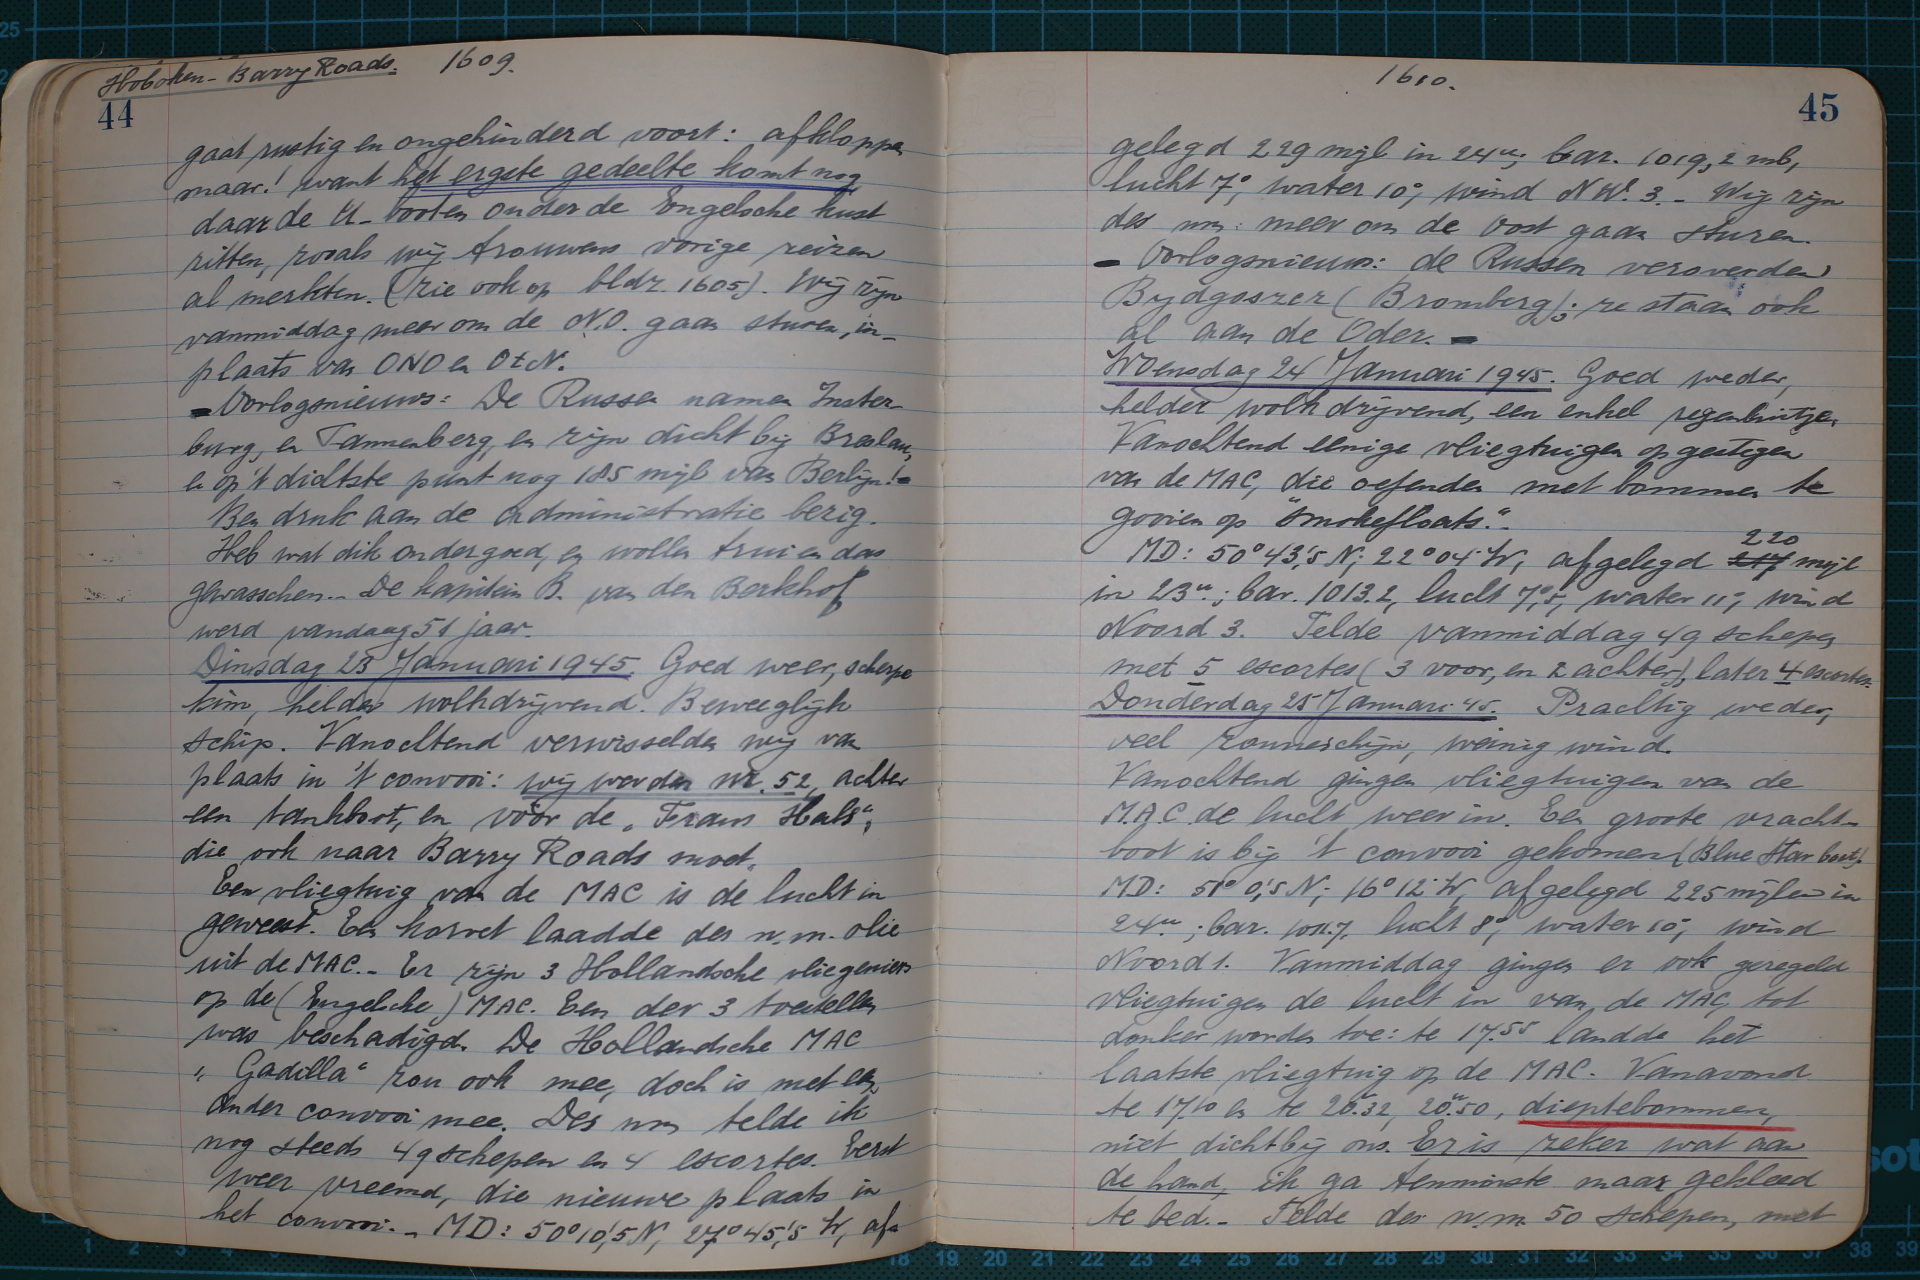 Hoboken - Barry Roads. 1609.
44
gaat rustig en ongehinderd voort: afkloppen
maar! want het ergste gedeelte komt nog
daar de U-booten onder de Engelsche kust
zitten, zooals wij trouwens vorige reizen
al merkten. (zie ook op bldz. 1605). Wij zijn
vanmiddag meer om de N.O. gaan sturen, in-
plaats van ONO en OtN.
- Oorlogsnieuws: De Russen namen Inster-
burg, en Tannenberg, en zijn dicht bij Breslau,
en op 't dichtste punt nog 185 mijl van Berlijn! -
Ben druk aan de administratie bezig.
Heb wat dik ondergoed, en wollen trui en das
gewasschen. - De kapitein B. van den Berkhof
werd vandaag 51 jaar.
Dinsdag 23 Januari 1945. Goed weer, scherpe
kim, helder wolkdrijvend. Beweeglijk
schip. Vanochtend verwisselden wij van
plaats in 't convooi: wij werden nr. 52, achter
een tankboot, en vóór de „Frans Hals",
die ook naar Barry Roads moet.
Een vliegtuig van de MAC is de lucht in
geweest. Een korvet laadde des n.m. olie
uit de MAC. - Er zijn 3 Hollandsche vliegeniers
op de (Engelsche) MAC. Een der 3 toestellen
was beschadigd. De Hollandsche MAC
„Gadilla" zou ook mee, doch is met een
ander convooi mee. Des nm telde ik
nog steeds 49 schepen en 4 escortes. Eerst
weer vreemd, die nieuwe plaats in
het convooi. - MD: 50°10',5 N, 27°45',5 W, af-
1610.
45
gelegd 229 mijl in 24u, bar. 1019,2 mb,
lucht 7°, water 10°, wind NW. 3. - Wij zijn
des nm: meer om de Oost gaan sturen.
- Oorlogsnieuws: de Russen veroverden
Bydgoszcz (Bromberg); ze staan ook
al aan de Oder. -
Woensdag 24 Januari 1945. Goed weder,
helder wolkdrijvend, een enkel regenbuitje.
Vanochtend eenige vliegtuigen opgestegen
van de MAC, die oefenden met bommen te
gooien op "smokefloats".
220
MD: 50°43',5 N; 22°04' W, afgelegd 217 mijl
in 23u.; bar. 1013.2, lucht 7°,5, water 11°, wind
Noord 3. Telde vanmiddag 49 schepen
met 5 escortes (3 voor, en 2 achter), later 4 escortes.
Donderdag 25 Januari 45. Prachtig weder,
veel zonneschijn, weinig wind.
Vanochtend gingen vliegtuigen van de
M.A.C. de lucht weer in. Een groote vracht-
boot is bij 't convooi gekomen (Blue Star boot).
MD: 51° 0',5 N; 16°12' W, afgelegd 225 mijlen in
24u; bar. 1011.7, lucht 8°, water 10°, wind
Noord 1. Vanmiddag gingen er ook geregeld
vliegtuigen de lucht in van de MAC, tot
donker worden toe: te 17.55 landde het
laatste vliegtuig op de MAC. Vanavond
te 17.10 en te 20u.32, 20u.50, dieptebommen,
niet dichtbij ons. Er is zeker wat aan
de hand, ik ga tenminste maar gekleed
te bed. - Telde des n.m. 50 schepen, met